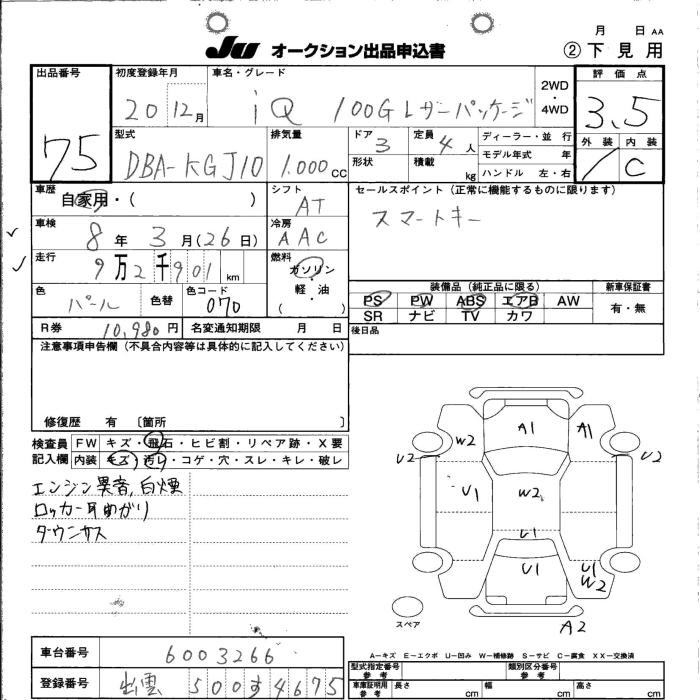 月 日 AA
JU オークション出品申込書
② 下見用
出品番号 75
初度登録年月 20 12月
車名・グレード iQ 100G レザーパッケージ
2WD・4WD
評価点 3.5
外装 / 内装 C
型式 DBA-KGJ10
排気量 1,000cc
ドア 3
定員 4人
形状
積載 kg
ディーラー・並行
モデル年式 年
ハンドル 左・右
車歴 自家用・( )
シフト AT
セールスポイント(正常に機能するものに限ります)
スマートキー
車検 8年 3月(26日)
冷房 AAC
走行 9万2千901km
燃料 ガソリン・軽油 ( )
色 パール 色替
色コード 070
装備品(純正品に限る) 新車保証書
PS PW ABS エアB AW 有・無
SR ナビ TV カワ
R券 10,980円 名変通知期限 月 日
後日品
注意事項申告欄(不具合内容等は具体的に記入してください)
修復歴 有 〔箇所 〕
検査員記入欄 FW キズ・飛石・ヒビ割・リペア跡・X要
内装 キズ・汚レ・コゲ・穴・スレ・キレ・破レ
エンジン異音,白煙
ロッカー耳曲がり
ダウンサス
A1 A1
W2
U2 U2
U1 W2
U1
U1 U1
W2
スペア
A2
A-キズ E-エクボ U-凹み W-補修跡 S-サビ C-腐食 XX-交換済
車台番号 6003266
登録番号 出雲 500す4675
型式指定番号 参考
類別区分番号 参考
車庫証明用 参考 長さ cm 幅 cm 高さ cm